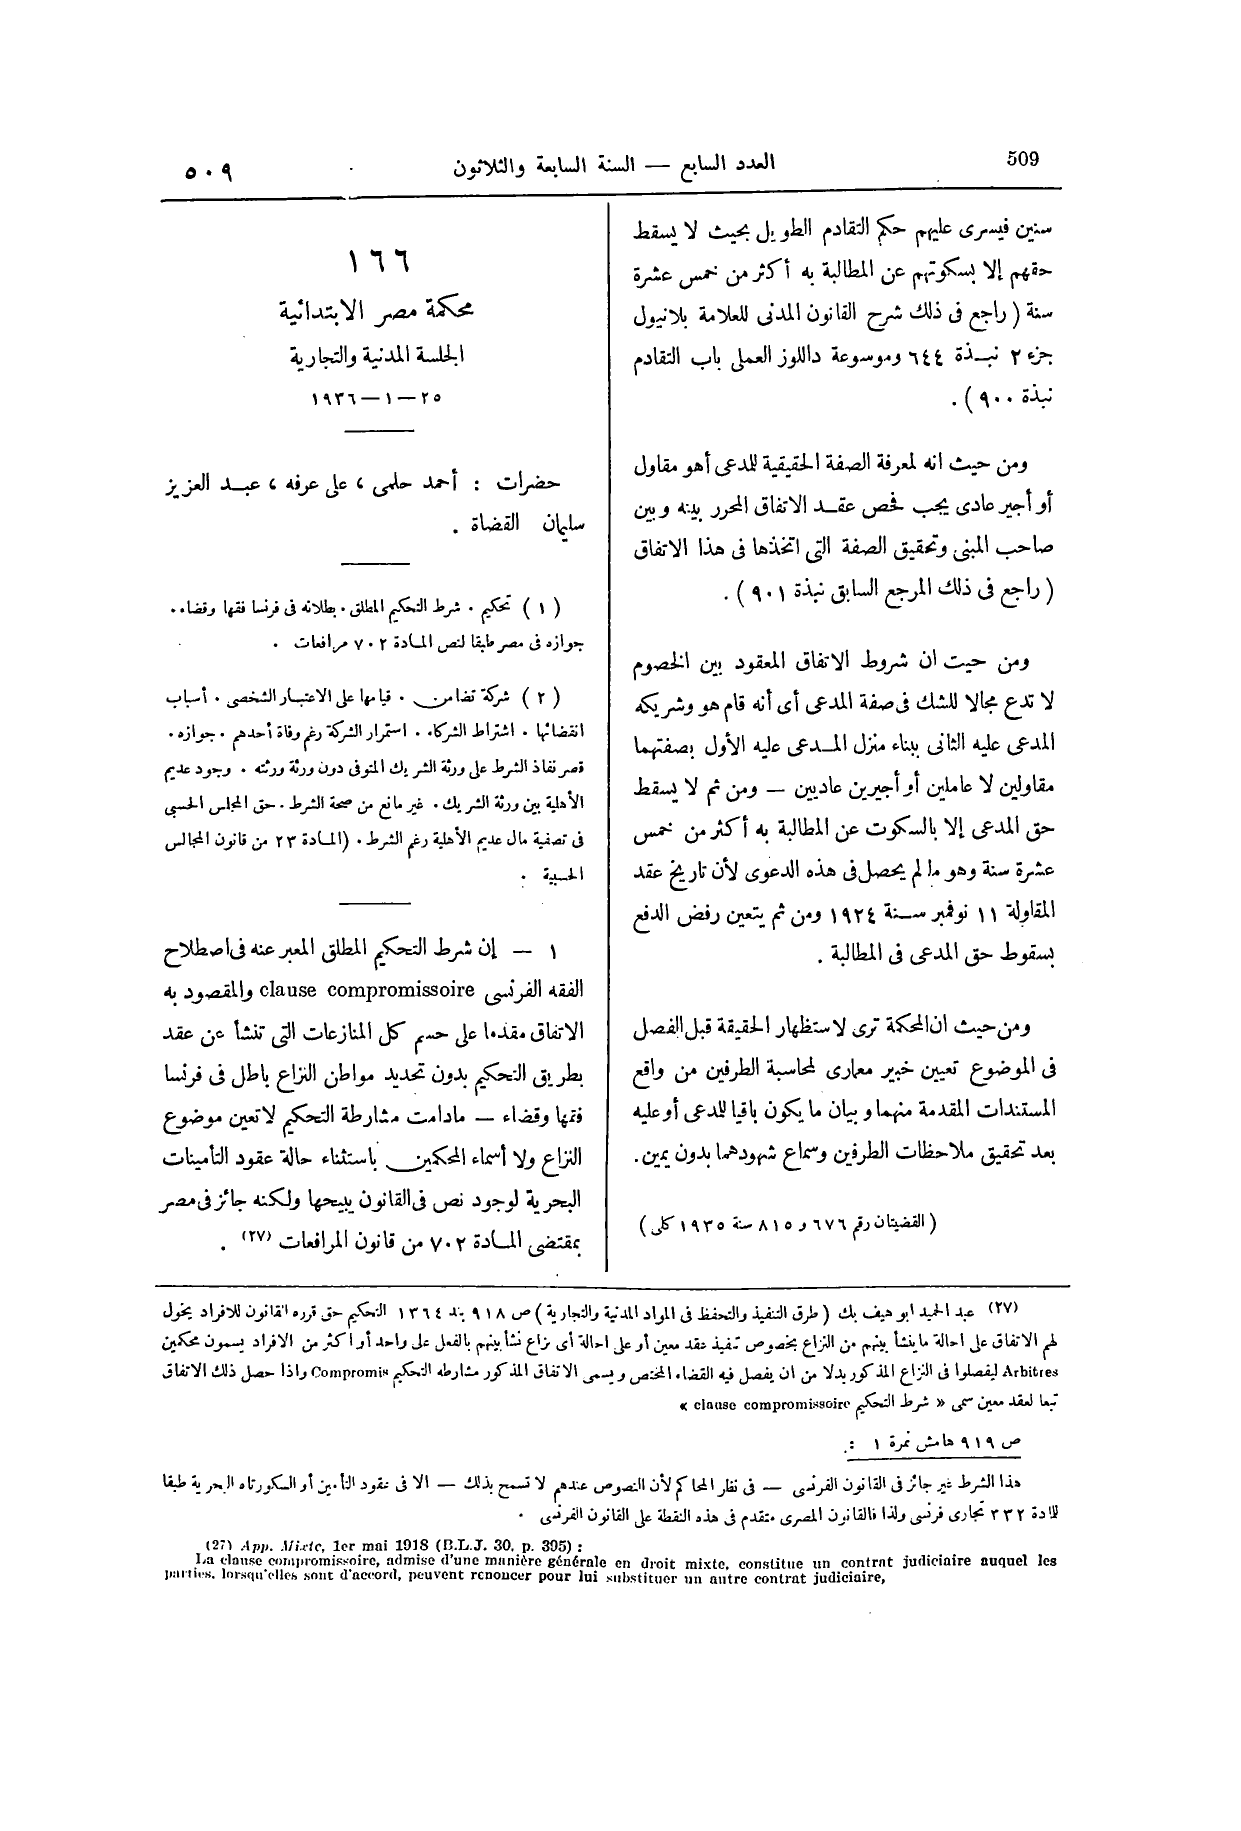 509
العدد السابع — السنة السابعة والثلاثون
٥٠٩
سنين فيسرى عليهم حكم التقادم الطويل بحيث لا يسقط
حقهم إلا بسكوتهم عن المطالبة به أكثر من خمس عشرة
سنة ( راجع فى ذلك شرح القانون المدنى للعلامة بلانيول
جزء ٢ نبـذة ٦٤٤ وموسوعة داللوز العملى باب التقادم
نبذة ٩٠٠ ) .
ومن حيث انه لمعرفة الصفة الحقيقية للمدعى أهو مقاول
أو أجير عادى يجب فحص عقـد الاتفاق المحرر بينه وبين
صاحب المبنى وتحقيق الصفة التى اتخذها فى هذا الاتفاق
( راجع فى ذلك المرجع السابق نبذة ٩٠١ ) .
ومن حيث ان شروط الاتفاق المعقود بين الخصوم
لا تدع مجالا للشك فى صفة المدعى أى أنه قام هو وشريكه
المدعى عليه الثانى ببناء منزل المـدعى عليه الأول بصفتهما
مقاولين لا عاملين أو أجيرين عاديين — ومن ثم لا يسقط
حق المدعى إلا بالسكوت عن المطالبة به أكثر من خمس
عشرة سنة وهو ما لم يحصل فى هذه الدعوى لأن تاريخ عقد
المقاولة ١١ نوفمبر سـنة ١٩٢٤ ومن ثم يتعين رفض الدفع
بسقوط حق المدعى فى المطالبة .
ومن حيث ان المحكمة ترى لاستظهار الحقيقة قبل الفصل
فى الموضوع تعيين خبير معمارى لمحاسبة الطرفين من واقع
المستندات المقدمة منهما وبيان ما يكون باقيا للمدعى أو عليه
بعد تحقيق ملاحظات الطرفين وسماع شهودهما بدون يمين.
( القضيتان رقم ٦٧٦ و ٨١٥ سنة ١٩٣٥ كلى )
١٦٦
محكمة مصر الابتدائية
الجلسة المدنية والتجارية
٢٥ — ١ — ١٩٣٦
حضرات : أحمد حلمى ، على عرفه ، عبـد العزيز
سليمان القضاة .
( ١ ) تحكيم . شرط التحكيم المطلق . بطلانه فى فرنسا فقها وقضاء .
جوازه فى مصر طبقا لنص المـادة ٧٠٢ مرافعات .
( ٢ ) شركة تضامن . قيامها على الاعتبـار الشخصى . أسباب
انقضائها . اشتراط الشركاء . استمرار الشركة رغم وفاة أحدهم . جوازه .
قصر نفاذ الشرط على ورثة الشريك المتوفى دون ورثة ورثته . وجود عديم
الأهلية بين ورثة الشريك . غير مانع من صحة الشرط . حق المجلس الحسبى
فى تصفية مال عديم الأهلية رغم الشرط . (المـادة ٢٣ من قانون المجالس
الحسبية .
١ — إن شرط التحكيم المطلق المعبر عنه فى اصطلاح
الفقه الفرنسى clause compromissoire والمقصود به
الاتفاق مقدما على حسم كل المنازعات التى تنشأ عن عقد
بطريق التحكيم بدون تحديد مواطن النزاع باطل فى فرنسا
فقها وقضاء — مادامت مشارطة التحكيم لا تعين موضوع
النزاع ولا أسماء المحكمين باستثناء حالة عقود التأمينات
البحرية لوجود نص فى القانون يبيحها ولكنه جائز فى مصر
بمقتضى المـادة ٧٠٢ من قانون المرافعات (٢٧) .
(٢٧) عبد الحميد ابو هيف بك ( طرق التنفيذ والتحفظ فى المواد المدنية والتجارية ) ص ٩١٨ بند ١٣٦٤ التحكيم حق قرره القانون للافراد يخول
لهم الاتفاق على احالة ما ينشأ بينهم من النزاع بخصوص تنفيذ عقد معين أو على احالة أى نزاع نشأ بينهم بالفعل على واحد أو اكثر من الافراد يسمون محكمين
Arbitres ليفصلوا فى النزاع المذكور بدلا من ان يفصل فيه القضاء المختص ويسمى الاتفاق المذكور مشارطه التحكيم Compromis واذا حصل ذلك الاتفاق
تبعا لعقد معين سمى « شرط التحكيم clause compromissoire »
ص ٩١٩ هامش نمرة ١ :
هذا الشرط غير جائز فى القانون الفرنسى — فى نظر المحاكم لأن النصوص عندهم لا تسمح بذلك — الا فى عقود التأمين أو السكورتاه البحرية طبقا
للمادة ٣٣٢ تجارى فرنسى ولذا فالقانون المصرى متقدم فى هذه النقطة على القانون الفرنسى .
(27) App. Mixte, 1er mai 1918 (B.L.J. 30, p. 395) :
La clause compromissoire, admise d'une manière générale en droit mixte, constitue un contrat judiciaire auquel les
parties, lorsqu'elles sont d'accord, peuvent renoncer pour lui substituer un autre contrat judiciaire,